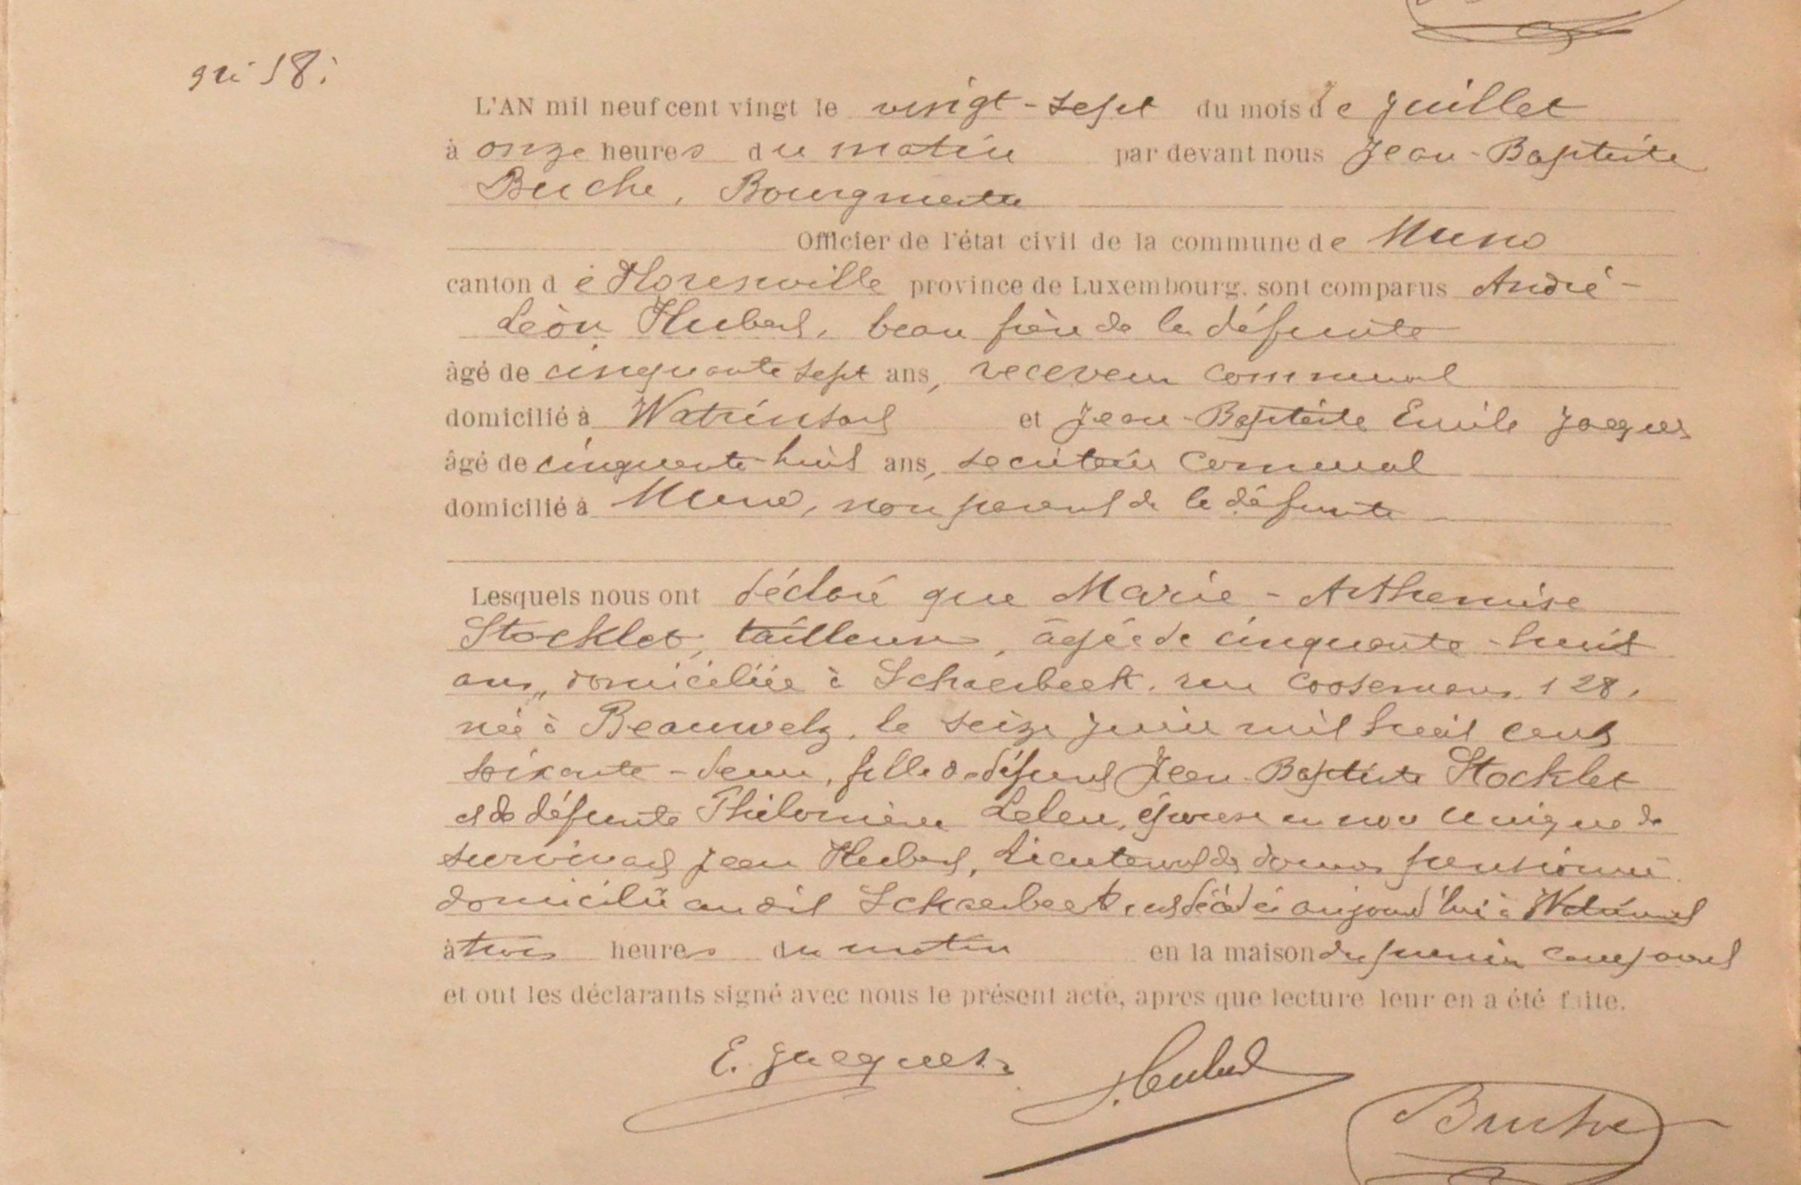 18.
L'AN mil neuf cent vingt le vingt-sept du mois de juillet
à onze heures du matin par devant nous Jean-Baptiste
Buche, Bourgmestre
Officier de l'état civil de la commune de Muno
canton de Florenville province de Luxembourg. sont comparus André-
Léon Hubert, beau frère de la défunte
âgé de cinquante sept ans, receveur communal
domicilié à Watrinsart et Jean-Baptiste Emile Jacques
âgé de cinquante-huit ans, secrétaire communal
domicilié à Muno, non parent de la défunte
Lesquels nous ont déclaré que Marie-Arthemise
Stocklet, tailleuse, âgée de cinquante-huit
ans, domiciliée à Schaerbeek, rue Coosemans 128,
née à Beauwelz, le seize juin mil huit cent
soixante-deux, fille de défunt Jean-Baptiste Stocklet
et de défunte Philomène Leleu, épouse en noce unique de
survivant Jean Hubert, Lieutenant de douane pensionné
domicilié au dit Schaerbeek, est décédée aujourd'hui à Watrinsart
à trois heures du matin en la maison du premier comparant
et ont les déclarants signé avec nous le présent acte, après que lecture leur en a été faite.
E. Jacques Hubert
Buche